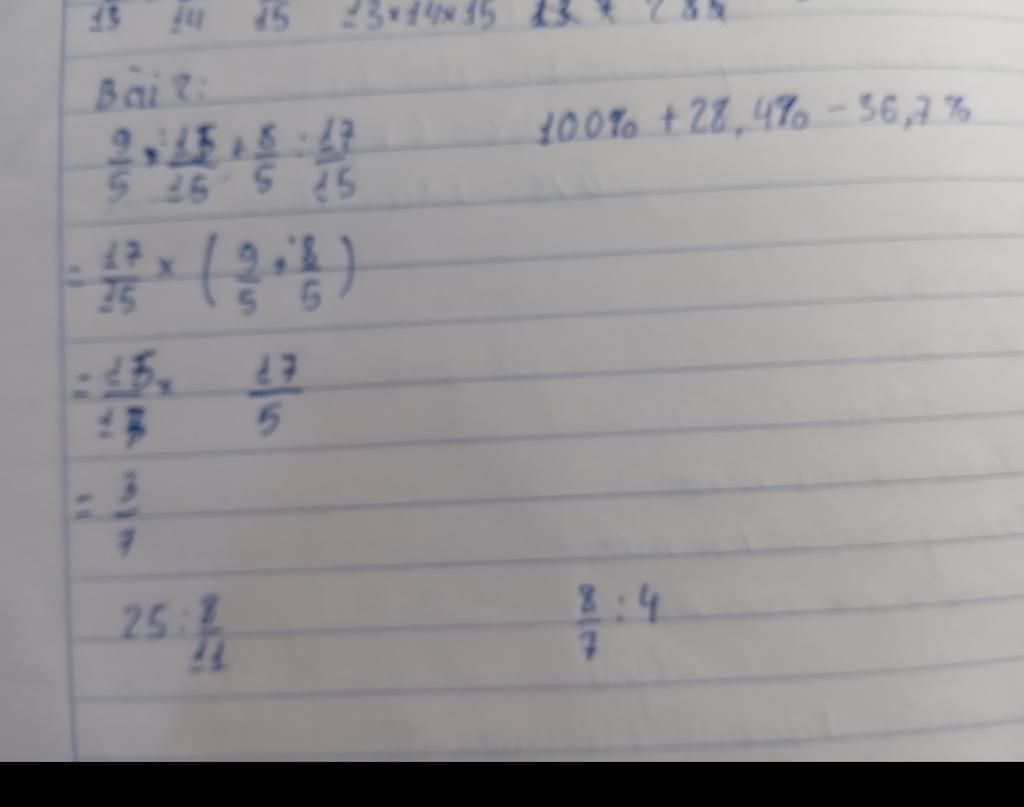 13 14 15 13×14×15 13 × 
Bài 2:
9/5 : 15/15 + 8/5 : 17/15 100% + 28,4% - 36,7%
= 17/15 × ( 9/5 + 8/5 )
= 15/17 × 17/5
= 3/7
25 : 8/11 8/7 : 4